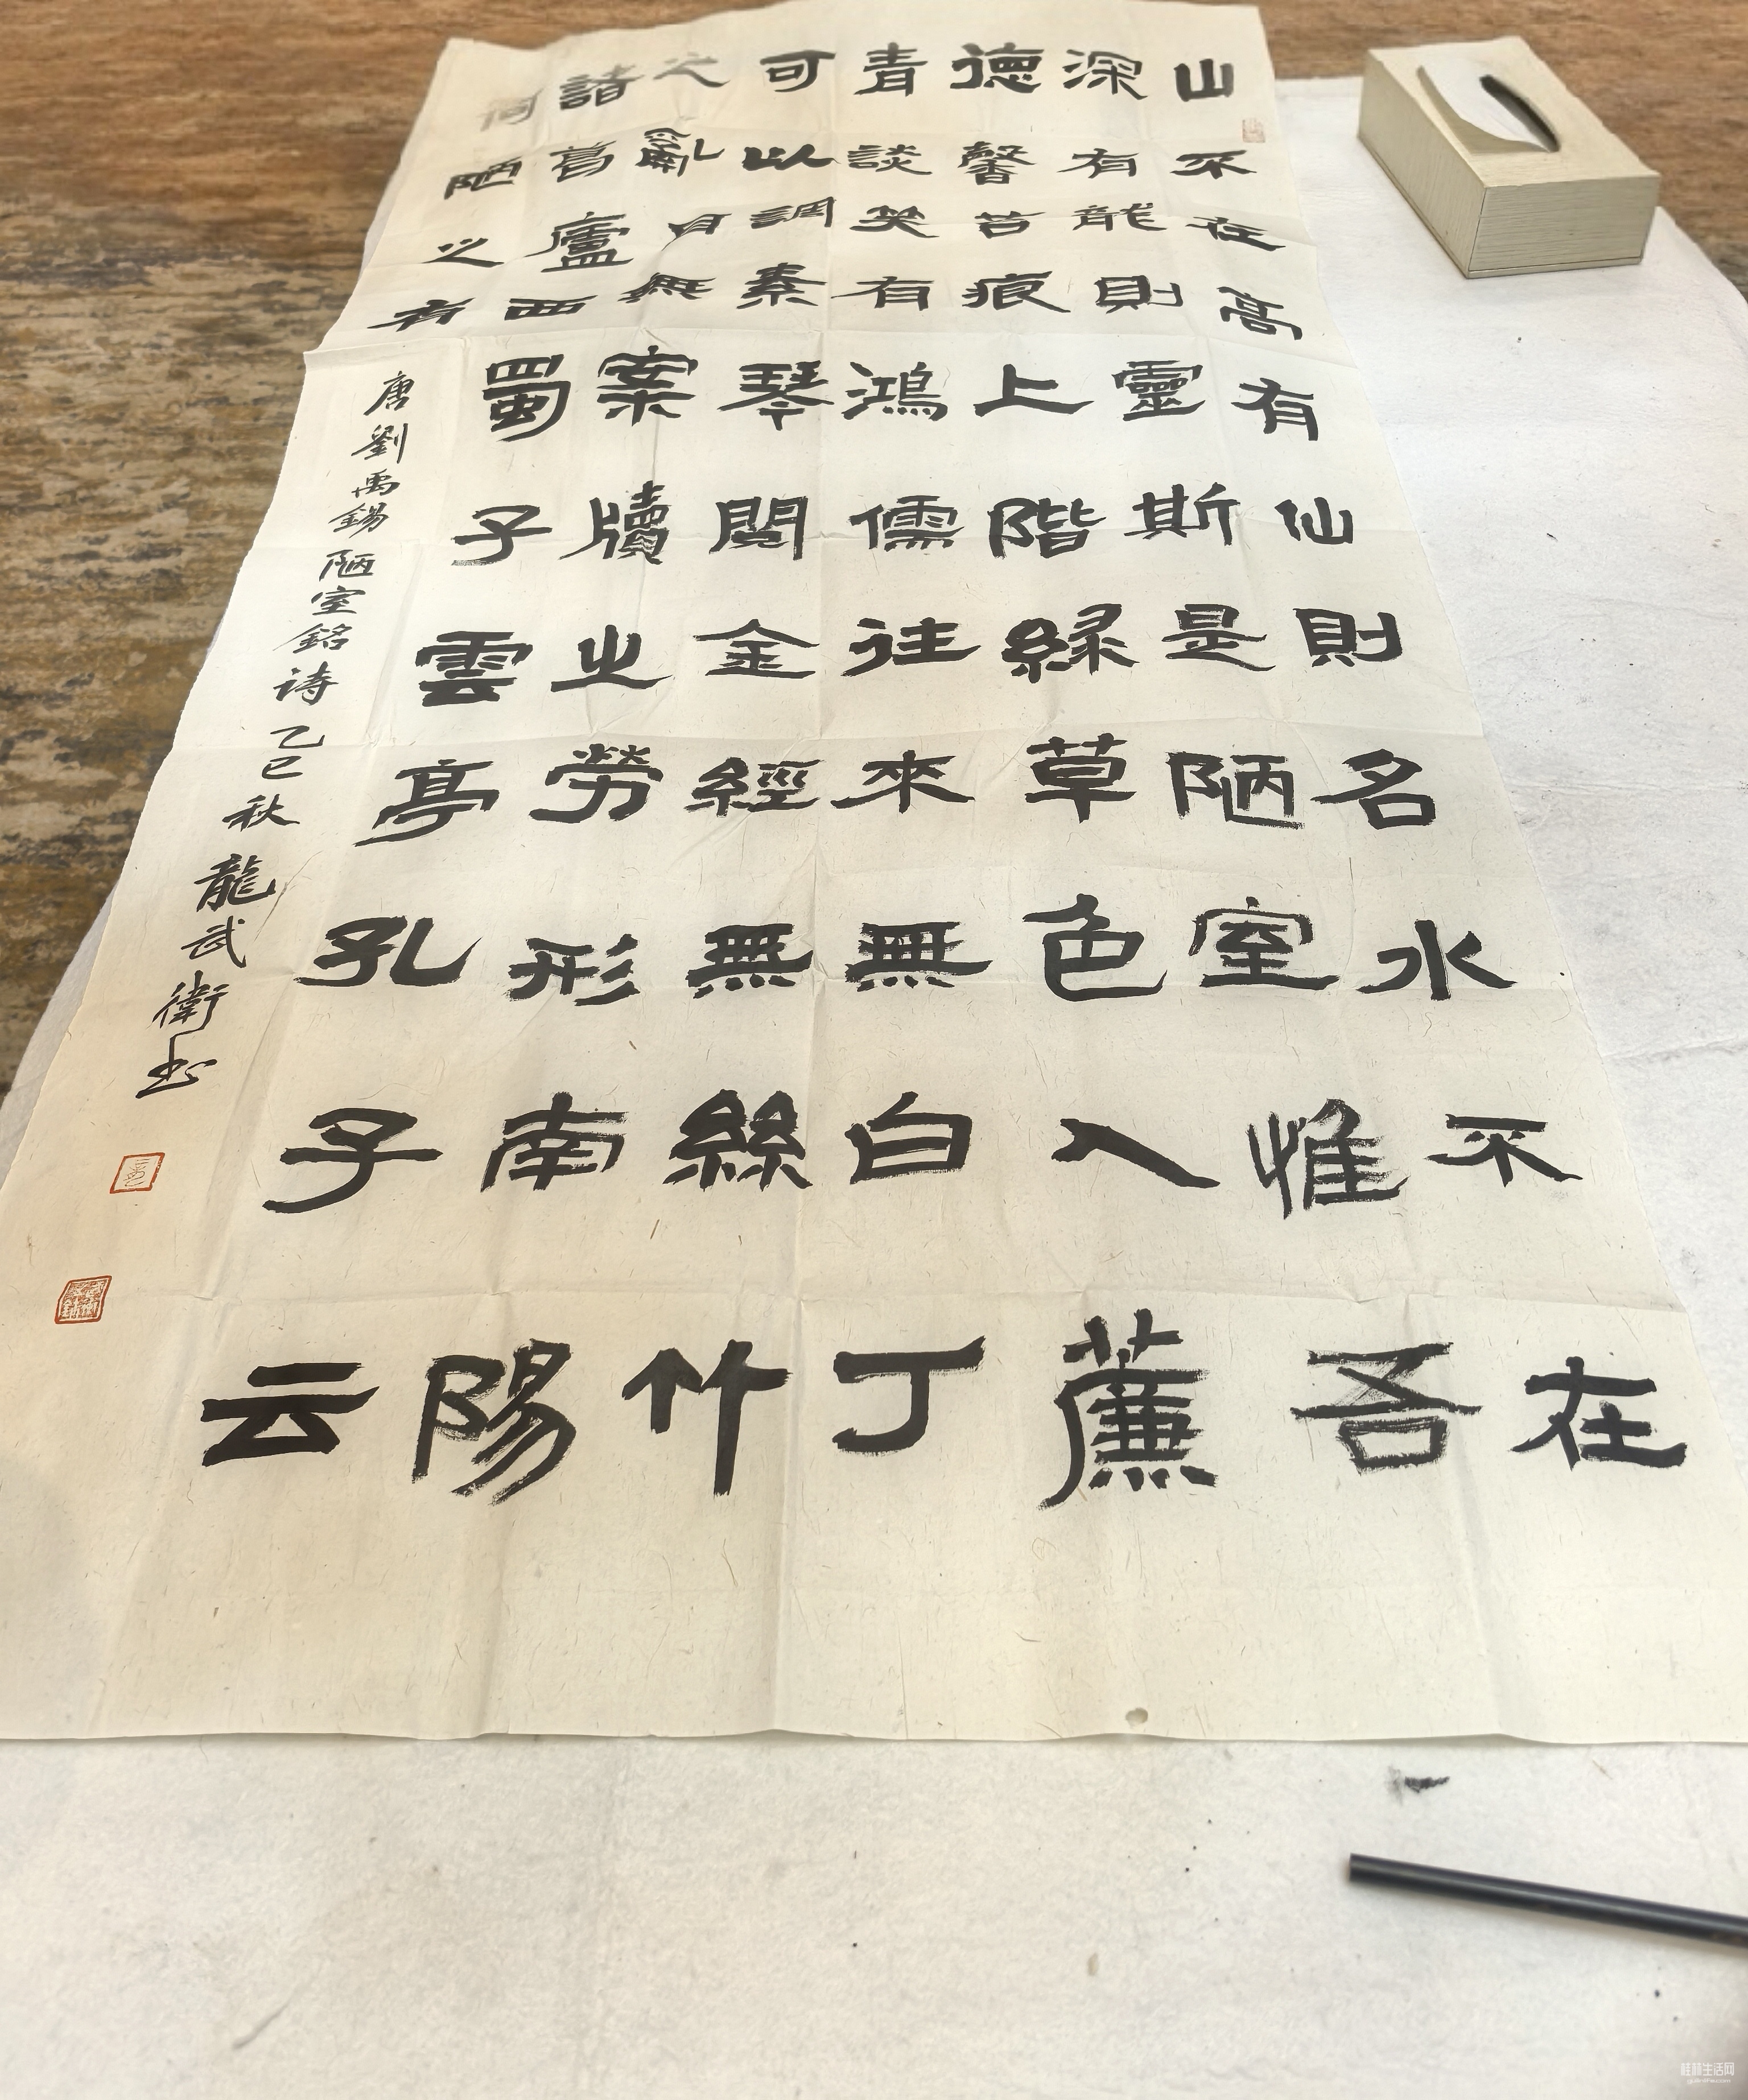 山不在高有仙則名水不在
深有龍則靈斯是陋室惟吾
德馨苔痕上階緑草色入薕
青談笑有鴻儒往來無白丁
可以調素琴閲金經無絲竹
之亂耳無案牘之勞形南陽
諸葛廬西蜀子雲亭孔子云
何陋之有
唐劉禹錫陋室銘诗乙巳秋龍武衛书
桂林生活网